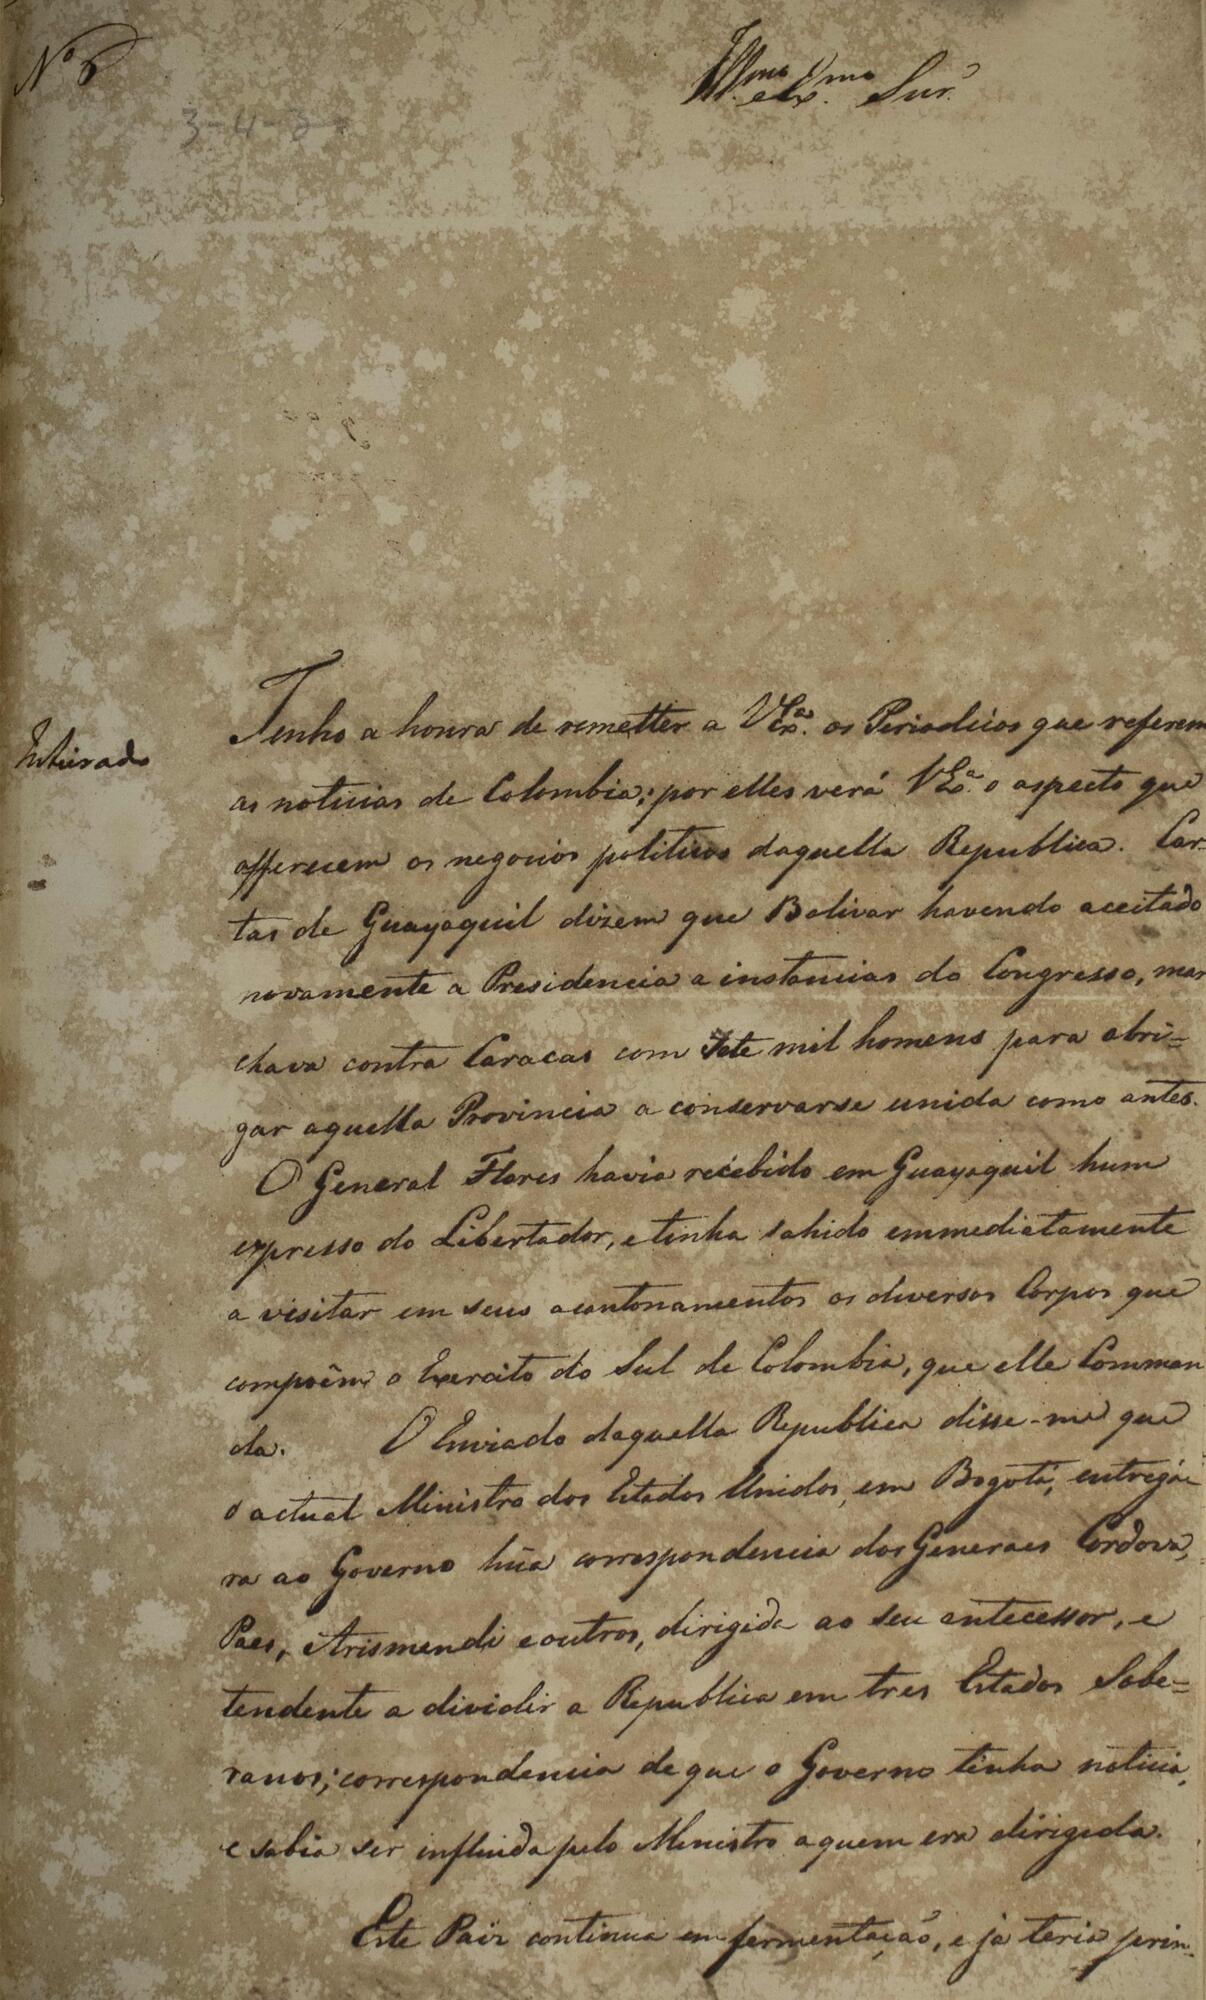 Nº 6
Illmo. e Exmo. Snr.
3-4-3
Tenho a honra de remetter a V Exa. os Periodicos que referem
Inteirado
as noticias de Colombia; por elles verá V Exa. o aspecto que
offerecem os negocios politicos daquella Republica. Car-
tas de Guayaquil dizem que Bolivar havendo aceitado
novamente a Presidencia a instancias do Congresso, mar
chava contra Caracas com sete mil homens para obri=
gar aquella Provincia a conservarse unida como antes.
O General Flores havia recebido em Guayaquil hum
expresso do Libertador, e tinha sahido emmediatamente
a visitar em seus acantonamentos os diversos Corpos que
compoêm o Exercito do Sul de Colombia, que elle Comman
da. O Enviado daquella Republica disse-me que
o actual Ministro dos Estados Unidos, em Bogotá, entregá=
ra ao Governo hũa correspondencia dos Generaes Cordova,
Paes, Arismendi e outros, dirigida ao seu antecessor, e
tendente a dividir a Republica em tres Estados Sobe=
ranos; correspondencia de que o Governo tinha noticia,
e sabia ser influida pelo Ministro a quem era dirigida.
Este Paiz continua em fermentação, e ja teria prin-